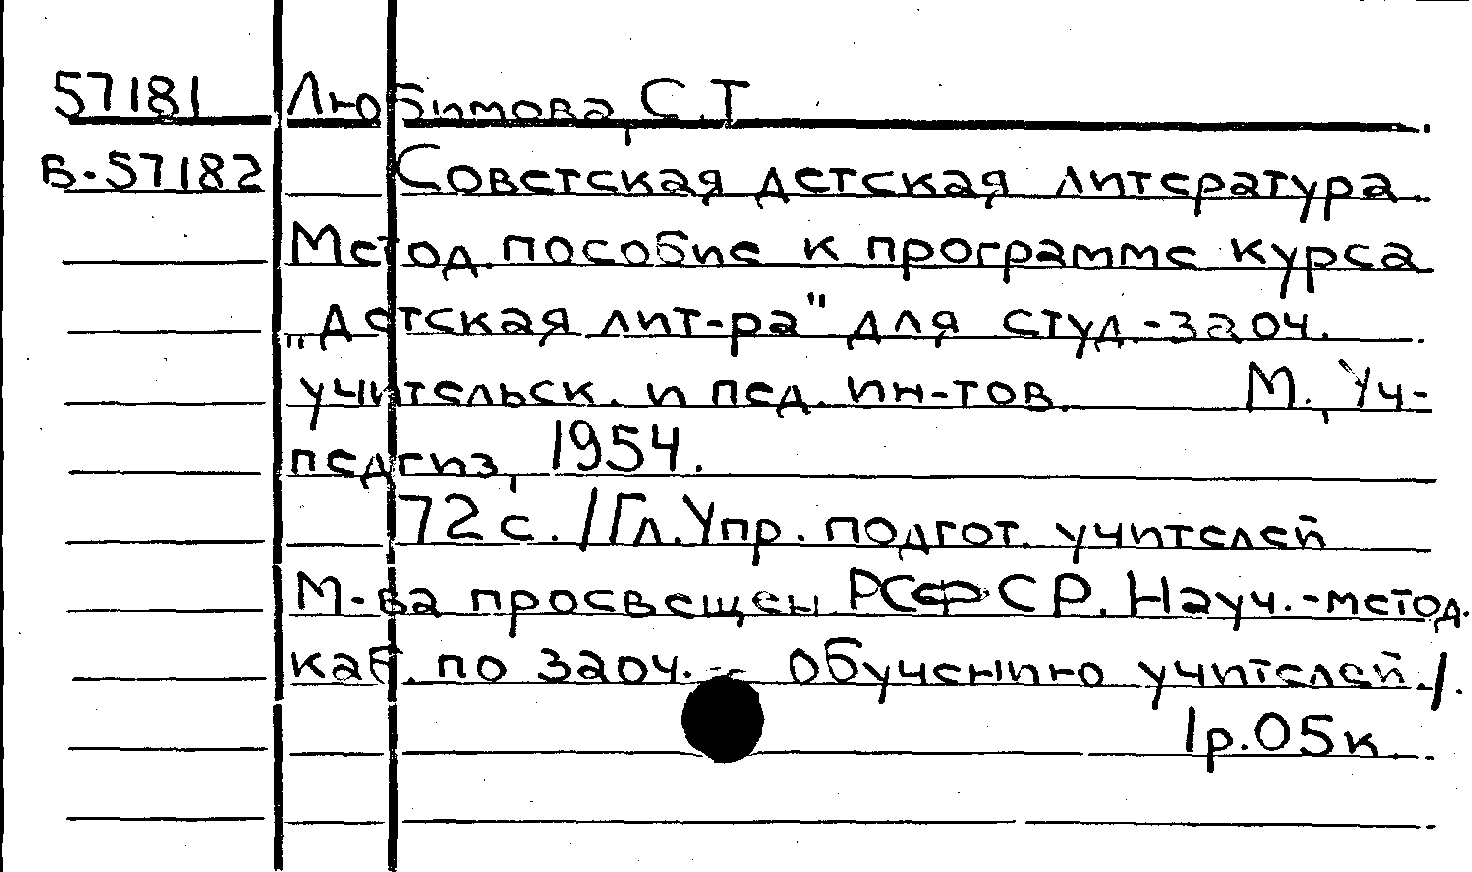 57181 Любимова, С.Т
Б.-57182 Советская детская литература.
Метод. пособие к программе курса
„Детская лит-ра" для студ.-заоч.
учительск. и пед. ин-тов. М., Уч-
педгиз, 1954.
72 с. /Гл. Упр. подгот. учителей
М-ва просвещен. РСФСР. Науч.-метод.
каб. по заоч.- обучению учителей/.
1р.05к.